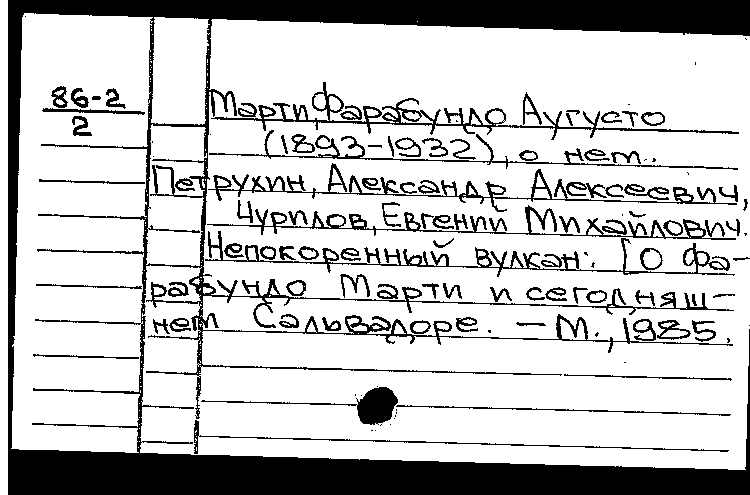 86-2
2
Марти, Фарабундо Аугусто
(1893-1932), о нем.
Петрухин, Александр Алексеевич,
Чурилов, Евгений Михайлович.
Непокоренный вулкан: [О Фа-
рабундо Марти и сегодняш-
нем Сальвадоре. - М., 1985.